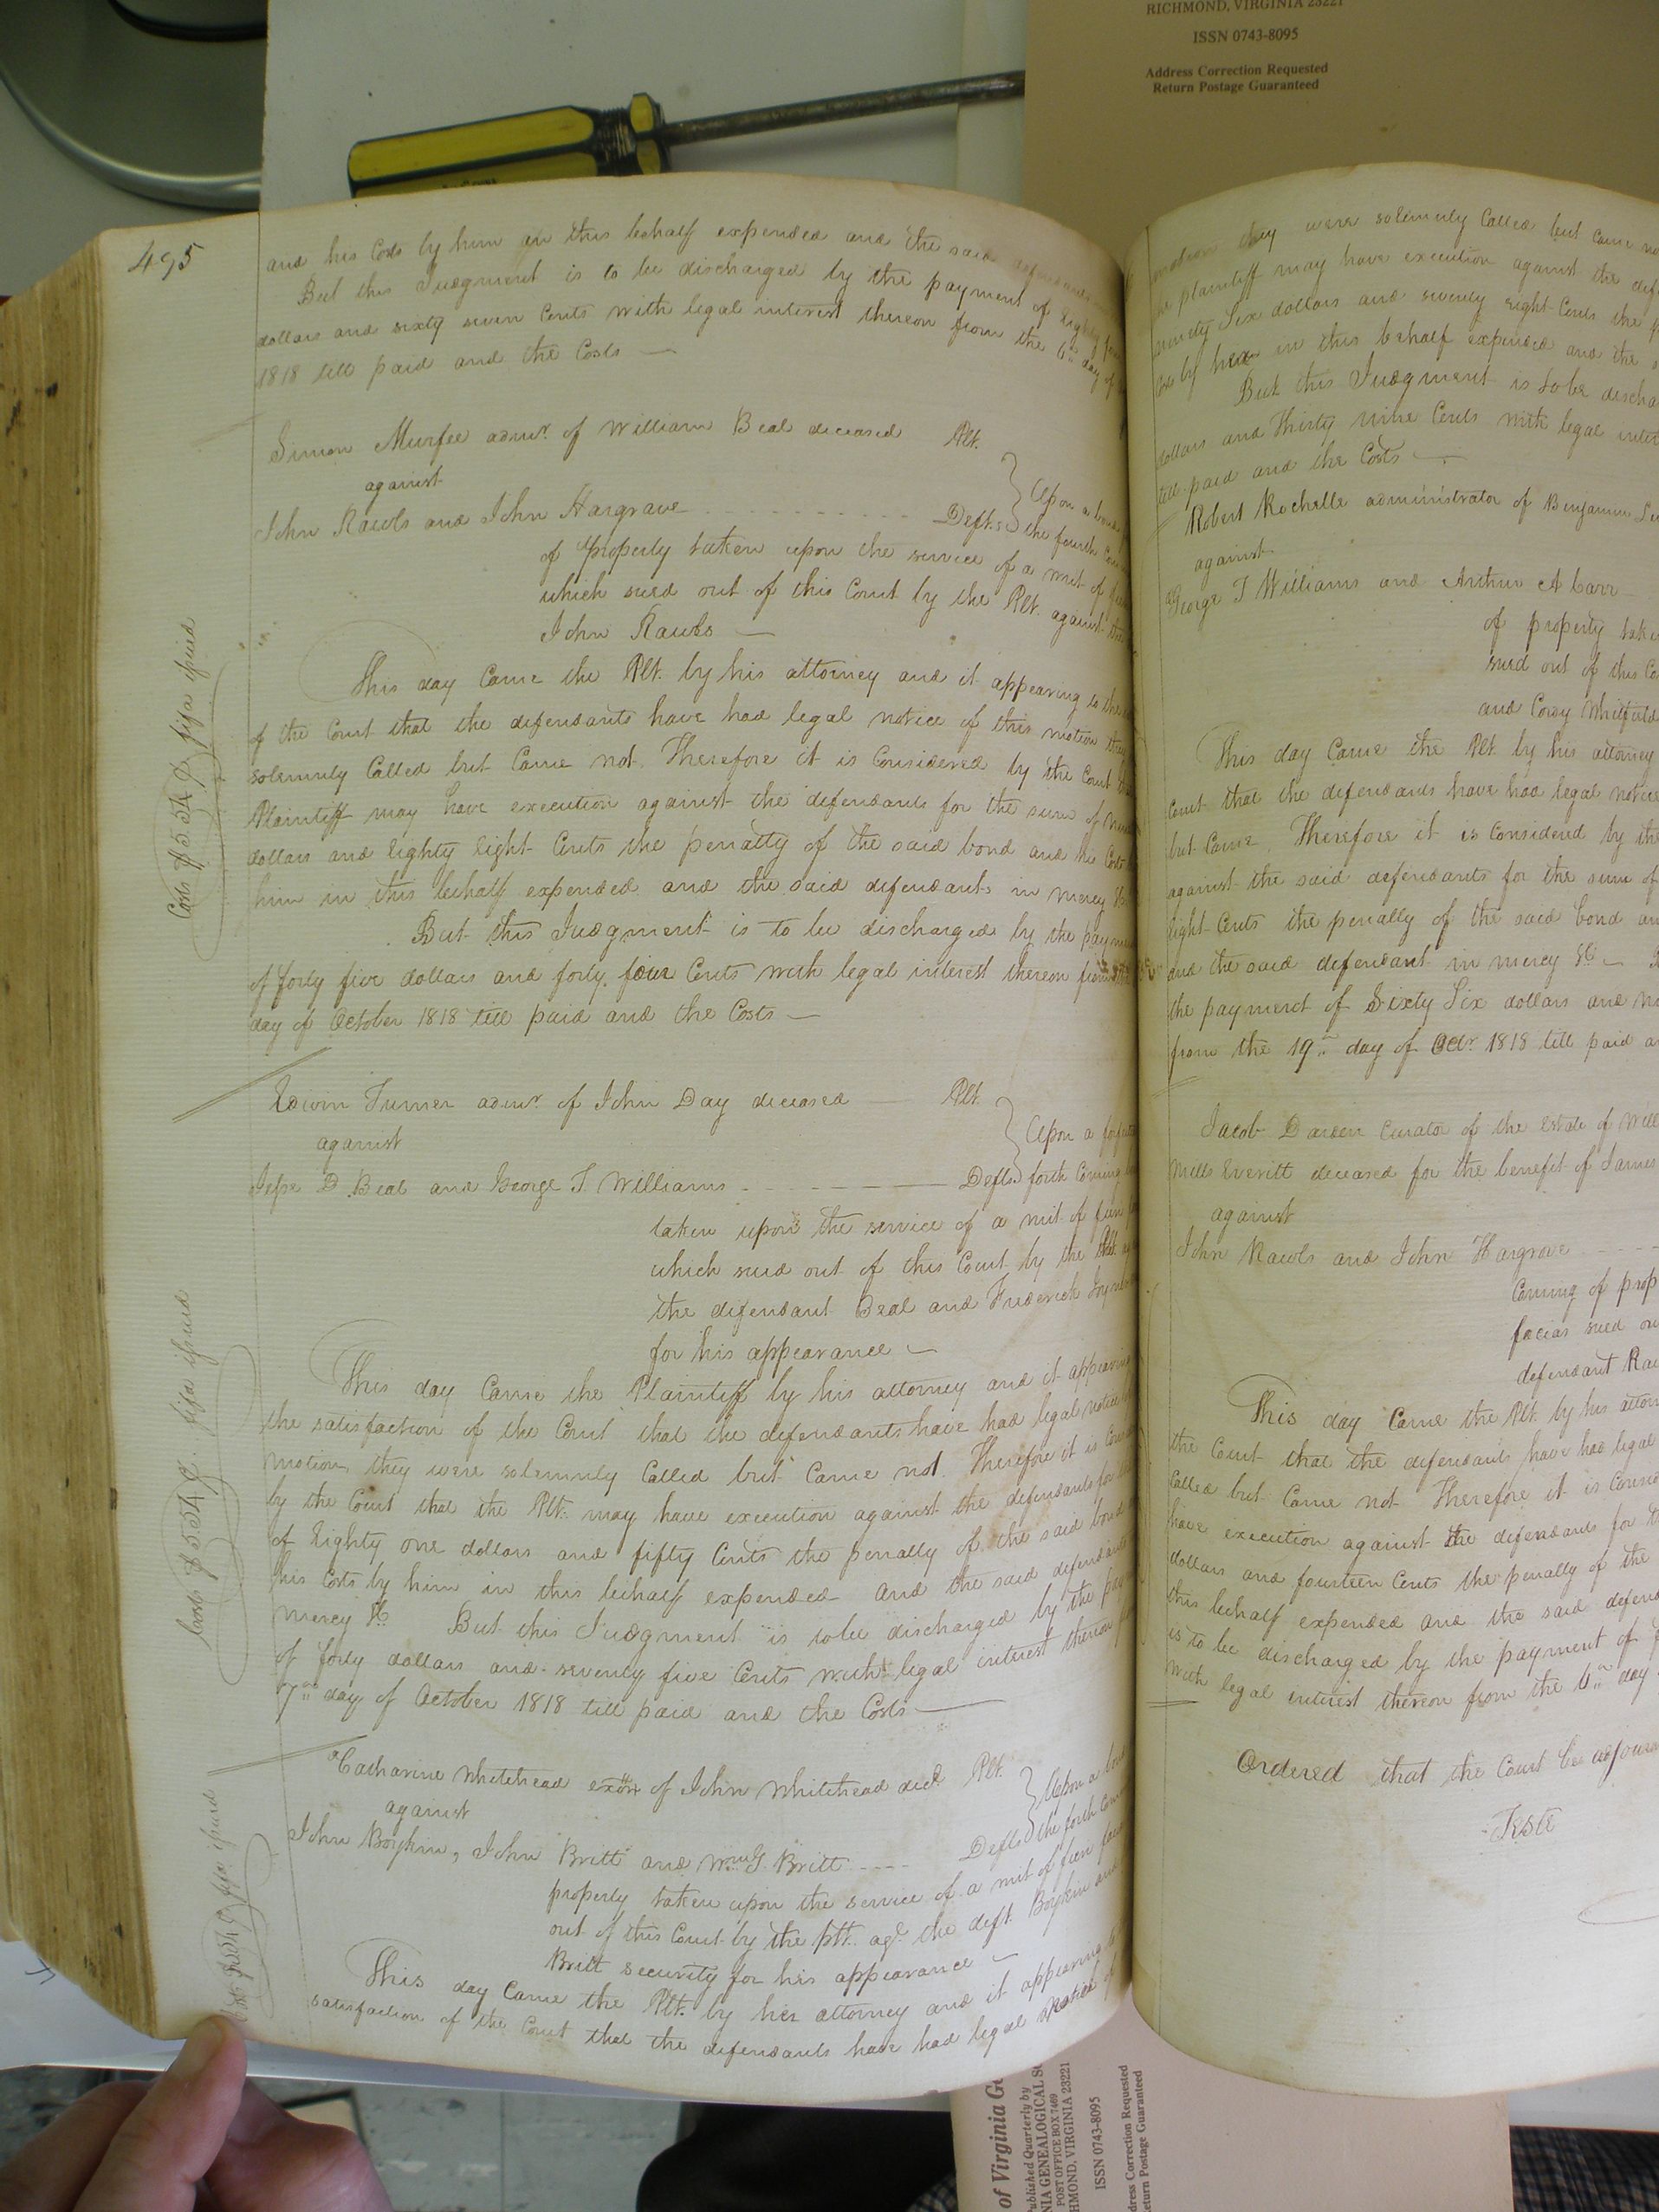 RICHMOND, VIRGINIA 23221
ISSN 0743-8095
Address Correction Requested
Return Postage Guaranteed
495
and his Costs by him in this behalf expended and the said defendants
But this Judgment is to be discharged by the payment of Eighty
dollars and sixty seven Cents with legal interest thereon from the 6th day of
1818 till paid and the Costs —
Simon Murfee admr. of William Beal deceased Plt.
against
John Rawls and John Hargrave Defts.
Upon a bond
the fourth
of property taken upon the service of a writ of
which sued out of this Court by the Plt. against the
John Rawls —
This day Came the Plt. by his attorney and it appearing to the
of the Court that the defendants have had legal notice of this motion they
solemnly Called but Came not. Therefore it is Considered by the Court
Plaintiff may have execution against the defendants for the sum of
dollars and Eighty Eight Cents the penalty of the said bond and his Costs
him in this behalf expended and the said defendants in mercy &c
But this Judgment is to be discharged by the payment
of forty five dollars and forty four Cents with legal interest thereon from
day of October 1818 till paid and the Costs —
Costs $5.54 fifa issued
Edwin Turner admr. of John Day deceased — Plt.
against
Jesse D. Beal and George T Williams Defts.
Upon a
forth Coming
taken upon the service of a writ of fieri
which sued out of this Court by the Plt.
the defendant Beal and Frederick
for his appearance —
This day Came the Plaintiff by his attorney and it appearing
the satisfaction of the Court that the defendants have had legal notice
motion, they were solemnly Called but Came not. Therefore it is
by the Court that the Plt. may have execution against the defendants for
of Eighty one dollars and fifty Cents the penalty of the said bond
his Costs by him in this behalf expended and the said defendants
mercy &c But this Judgment is to be discharged by the
of forty dollars and seventy five Cents with legal interest thereon
7th day of October 1818 till paid and the Costs —
Costs $5.54 fifa issued
Catharine Whitehead exor. of John Whitehead decd. Plt.
against
John Boykin, John Britt and Wm. G. Britt Defts.
Upon a
the forth
property taken upon the service of a writ of fieri
out of this Court by the plt. agt. the deft. Boykin and
Britt security for his appearance —
fifa issued
This day Came the Plt. by her attorney and it appearing
satisfaction of the Court that the defendants have had legal notice of
they were solemnly Called but Came
plaintiff may have execution against the
Six dollars and seventy eight Cents the
by her in this behalf expended and the
But this Judgment is to be
dollars and Thirty nine Cents with legal
till paid and the Costs —
Robert Rochelle administrator of Benjamin
against
George T Williams and Arthur A Carr
of property
sued out of this
and Cordy Whitfield
This day Came the Plt. by his attorney
Court that the defendants have had legal notice
but Came. Therefore it is Considered by the
against the said defendants for the sum of
eight Cents the penalty of the said bond
and the said defendant in mercy &c —
the payment of Sixty Six dollars and
from the 19th day of Octr. 1818 till paid
Jacob Darden Curator of the Estate of
Mills Everitt deceased for the benefit of James
against
John Rawls and John Hargrave
Coming of
facias sued
defendant
This day Came the Plt. by his
the Court that the defendants have had legal
Called but Came not Therefore it is
have execution against the defendants for
dollars and fourteen Cents the penalty of the
this behalf expended and the said
is to be discharged by the payment of
with legal interest thereon from the 6th day
Ordered that the Court be
Teste
of Virginia
Published Quarterly by
POST OFFICE BOX 7469
ISSN 0743-8095
Address Correction Requested
Return Postage Guaranteed